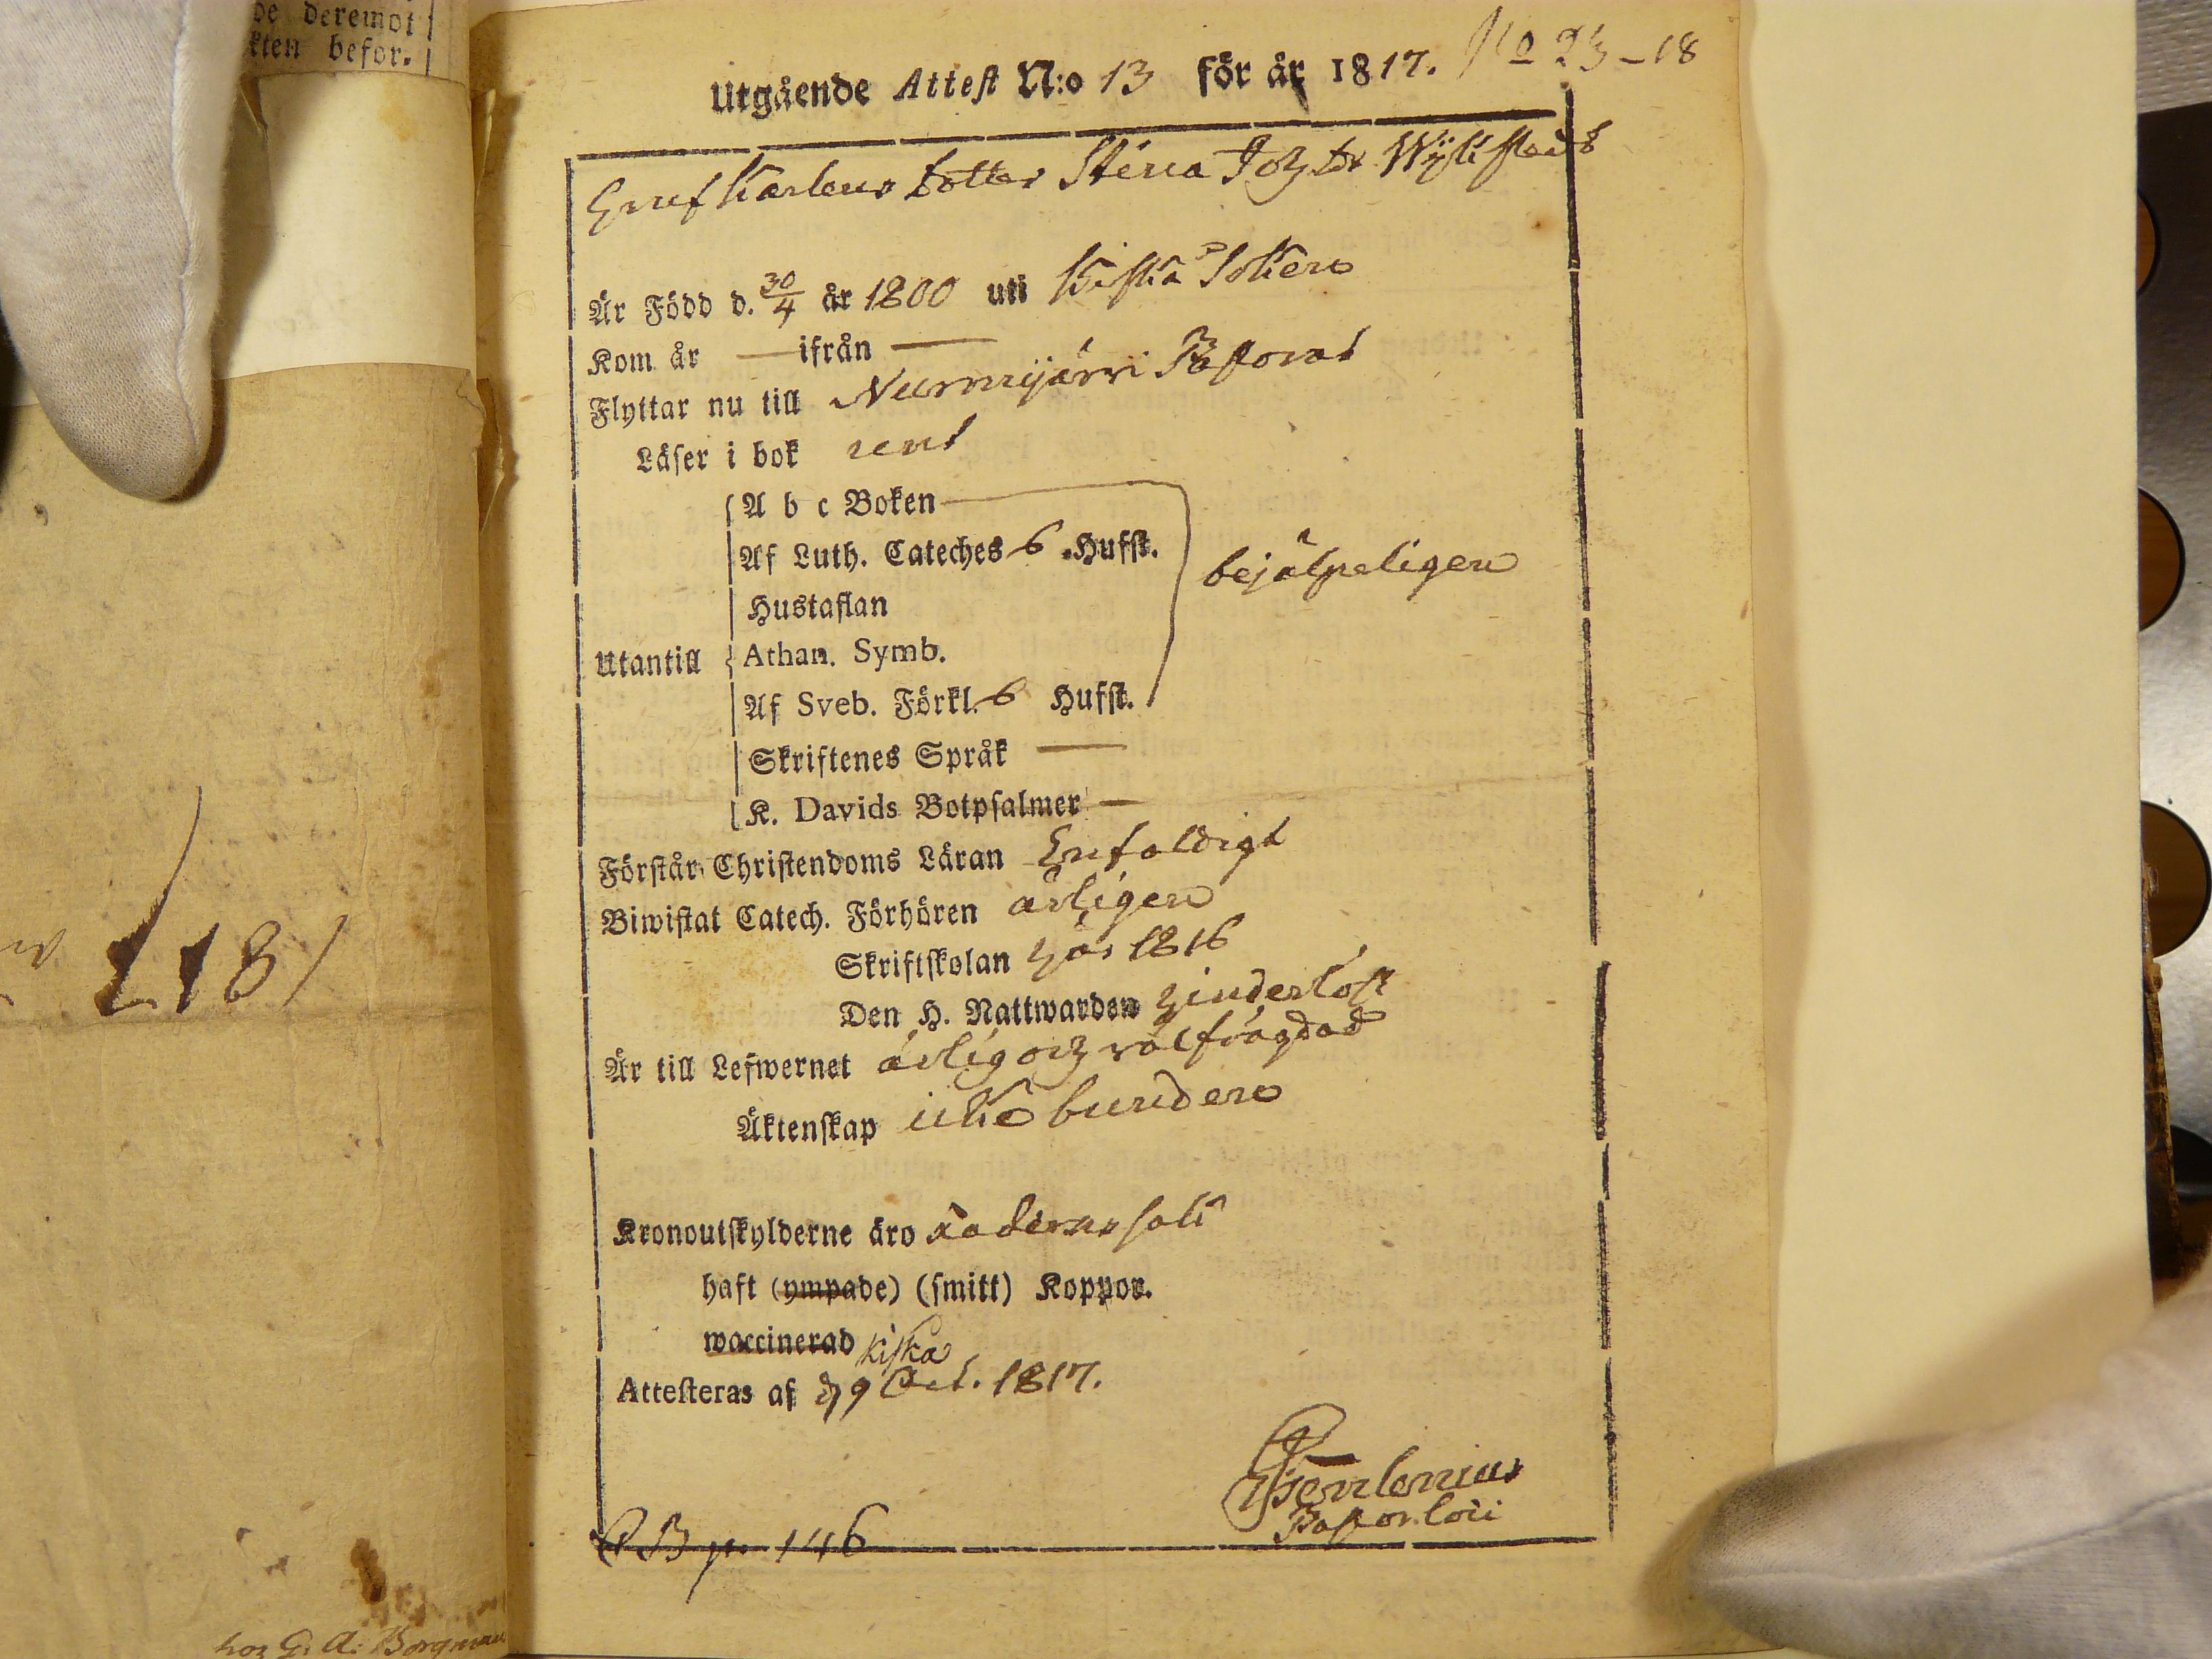 de deremot
kten befor.
Utgående Attest N:o 13 för år 1817. No 23-18
dotter Stina Joh dr
Är Född d. 30/4 år 1800 uti Kiskå Soken
Kom år — ifrån —
Flyttar nu till Nurmijärvi Pastorat
Läser i bok rent
A b c Boken
Af Luth. Cateches 6 Hufst.
bejälpeligen
Hustaflan
Utantill Athan. Symb.
Af Sveb. Förkl. 6 Hufst.
Skriftenes Språk —
K. Davids Botpsalmer —
Förstår Christendoms Läran Enfaldigt
Biwistat Catech. Förhören årligen
Skriftskolan h år 1816
Den H. Nattwarden hinderlöst
Är till Lefwernet ärlig och välfrägdad
Äktenskap icke bunden
Kronoutskylderne äro
haft (ympade) (smitt) Koppor.
waccinerad Kiska
Attesteras af d 9 Oct. 1817.
Pastor loci
CB p. 146
hos G. A. Borgman